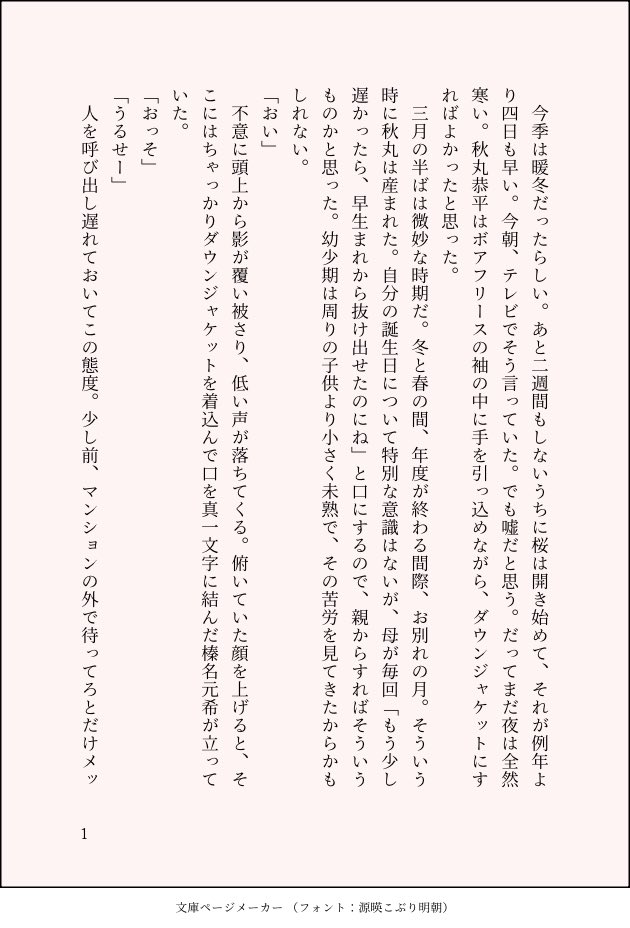 今季は暖冬だったらしい。あと二週間もしないうちに桜は開き始めて、それが例年よ
り四日も早い。今朝、テレビでそう言っていた。でも嘘だと思う。だってまだ夜は全然
寒い。秋丸恭平はボアフリースの袖の中に手を引っ込めながら、ダウンジャケットにす
ればよかったと思った。
三月の半ばは微妙な時期だ。冬と春の間、年度が終わる間際、お別れの月。そういう
時に秋丸は産まれた。自分の誕生日について特別な意識はないが、母が毎回「もう少し
遅かったら、早生まれから抜け出せたのにね」と口にするので、親からすればそういう
ものかと思った。幼少期は周りの子供より小さく未熟で、その苦労を見てきたからかも
しれない。
「おい」
不意に頭上から影が覆い被さり、低い声が落ちてくる。俯いていた顔を上げると、そ
こにはちゃっかりダウンジャケットを着込んで口を真一文字に結んだ榛名元希が立って
いた。
「おっそ」
「うるせー」
人を呼び出し遅れておいてこの態度。少し前、マンションの外で待ってろとだけメッ
1
文庫ページメーカー（フォント：源暎こぶり明朝）